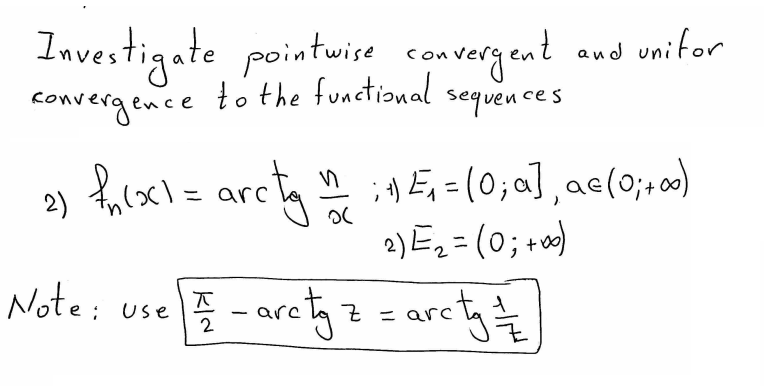 Investigate pointwise convergent and unifor
convergence to the functional sequences
2) fₙ(x) = arctg n/x ; 1) E₁ = (0; a], a∈(0;+∞)
2) E₂ = (0; +∞)
Note: use π/2 - arctg z = arctg 1/z